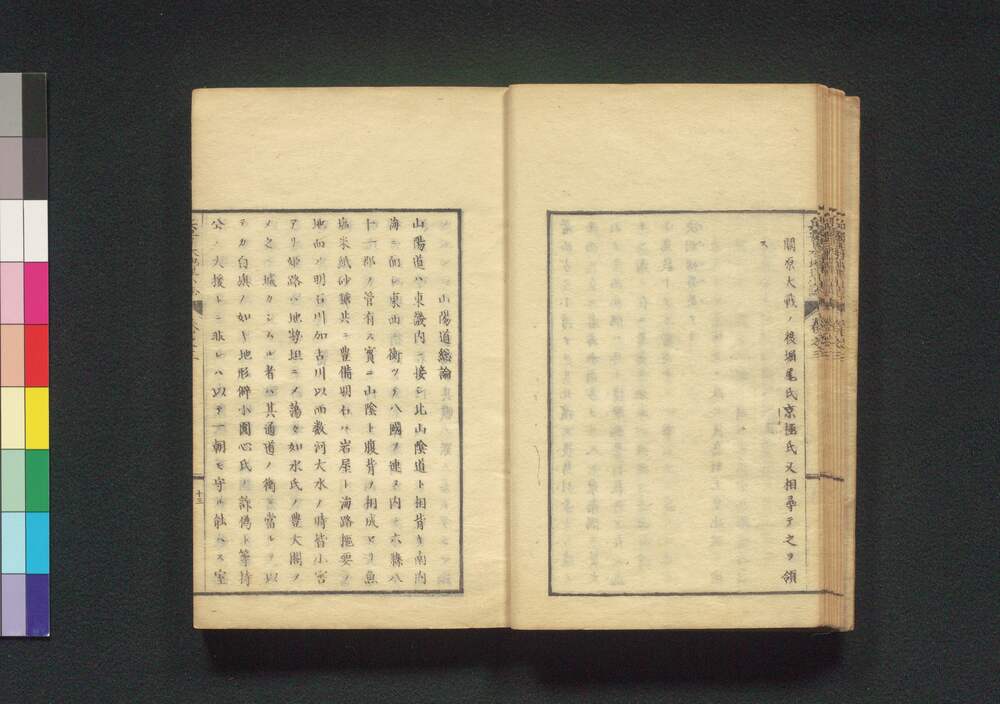 關原大戰ノ後堀尾氏京極氏又相尋テ之ヲ領
ス
山陽道總論
山陽道ハ東畿内ニ接シ北山陰道ト相背キ南内
海ニ面シ東西ニ衡ツテ八國ヲ連ヌ内ニ六縣八
十一郡ノ管有ス實ニ山陰ト腹背ノ相成セリ魚
塩米紙砂鐵共ニ豊備明石ハ岩屋ト海路扼要ノ
地而ノ明石川加古川以西数河大水ノ時皆小害
アリ姫路ハ地勢坦ニメ蕩々如水氏ノ豊大閤ヲ
ノ之ニ城カシムル者ハ其通道ノ衡ニ當ルヲ以
テカ白旗ノ如キ地形僻小圓心氏 詐偽ト等持
公ノ大援トニ非レハ以テ一朝モ守ル能ハス室
十三